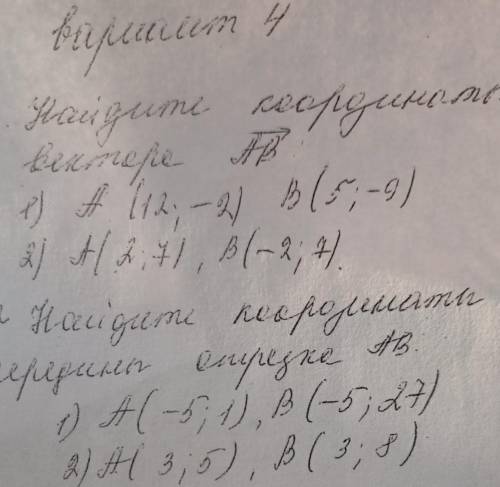 вариант 4
. Найдите координаты
вектора AB
1) A (12; -2) B (5; -9)
2) A( 2; 7), B(-2; 7).
Найдите координаты
середины отрезка AB.
1) A( -5; 1), B(-5; 27)
2) A( 3; 5), B( 3; 8)